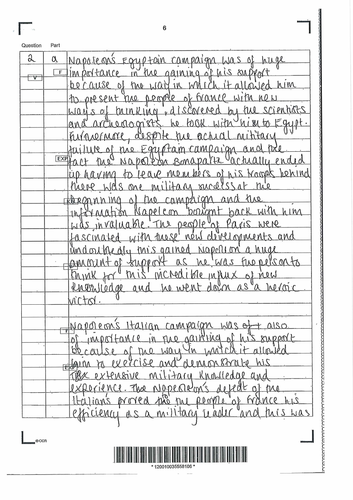 6
Question Part
2 a Napoleon's Egyptain campaign was of huge
F importance in the gaining of his support
V because of the way in which it allowed him
to present the people of France with new
ways of thinking, discovered by the scientists
and archaeologists he took with him to Egypt.
Furthermore, despite the actual military
failure of the Egyptain campaign and the
EXP fact the Napoleon Bonapatte actually ended
up having to leave members of his troops behind
there was one military success at the
beginning of the campaign and the
information Napoleon bought back with him
was invaluable. The people of Paris were
fascinated with these new developments and
undoubtedly this gained Napoleon a huge
amount of support as he was the person to
think for this incredible influx of new
knowledge and he went down as a heroic
victor.
Napoleon's Italian campaign was of also
of importance in the gaining of his support
because of the way in which it allowed
him to exercise and demonstrate his
extensive military knowledge and
experience. The Napoleon's defeat of the
Italians proved to the people of France his
efficiency as a military leader and this was
©OCR